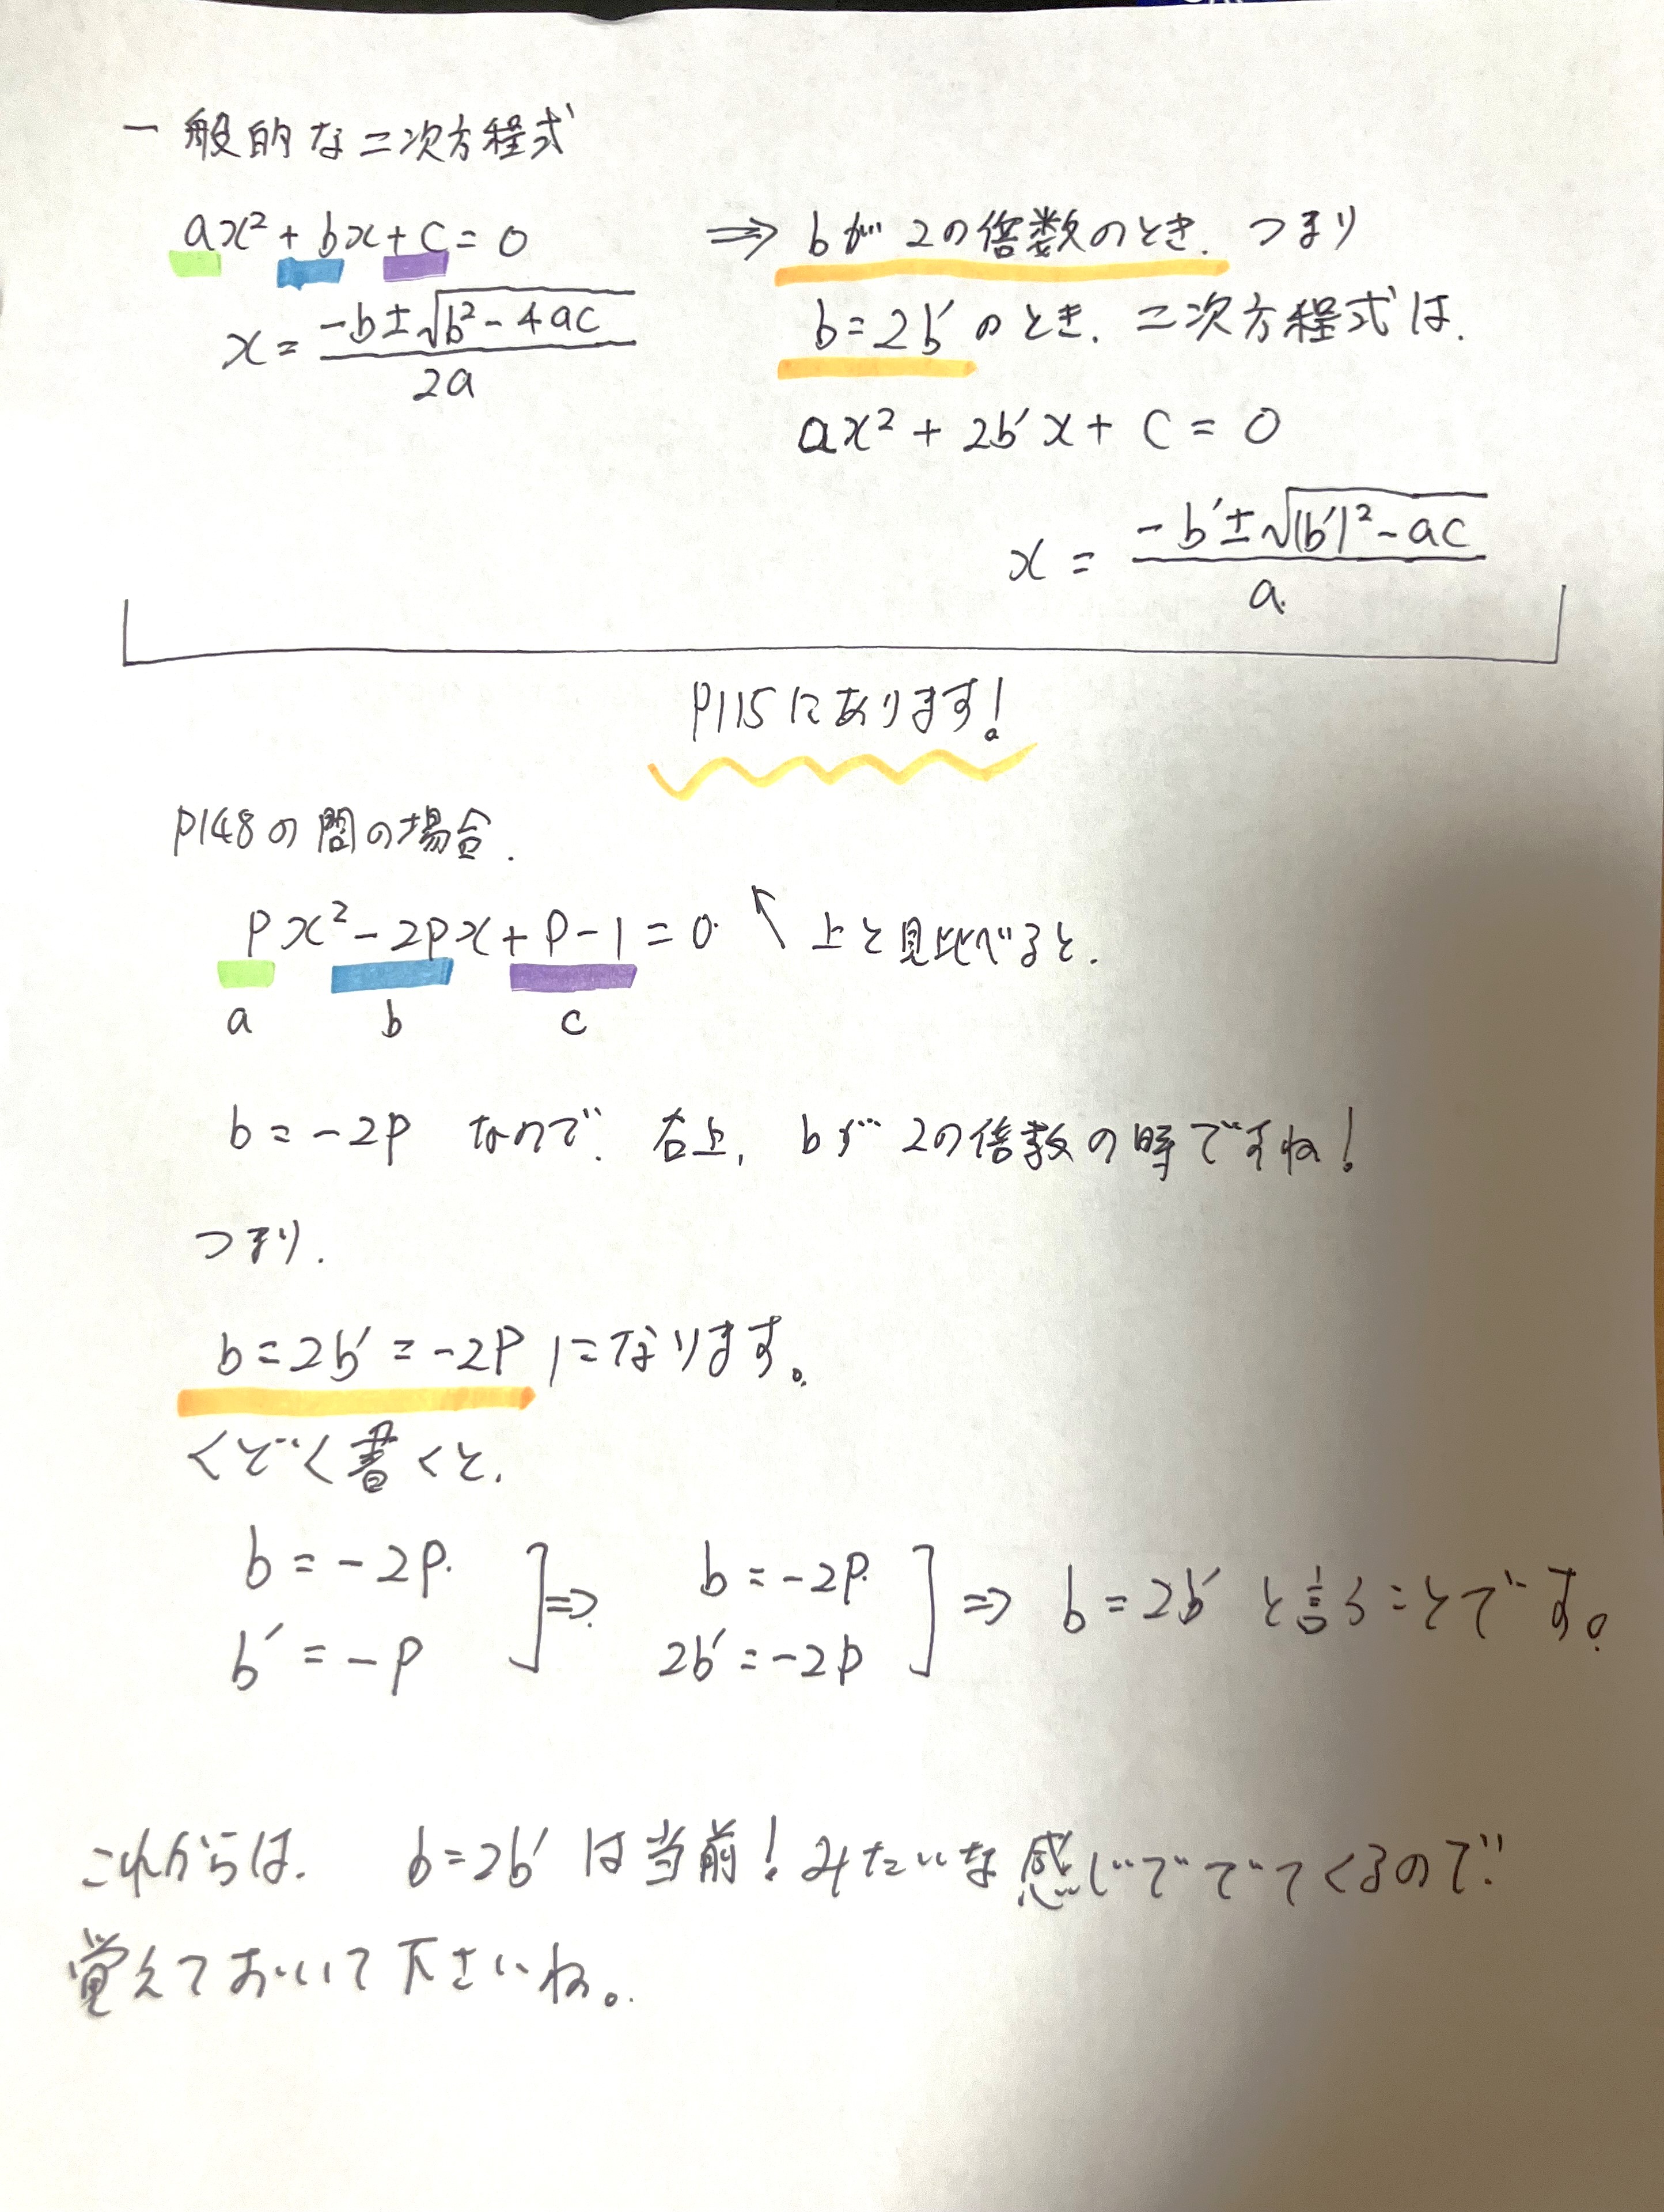 一般的な二次方程式
ax² + bx + c = 0
x = (-b±√(b²-4ac))/2a
⇒ bが2の倍数のとき、つまり
b=2b'のとき、二次方程式は、
ax² + 2b'x + c = 0
x = (-b'±√((b')²-ac))/a
P115にあります!
P148の問の場合、
px²-2px+p-1=0 ↖ 上と見比べると、
a b c
b = -2p なので、右上、bが2の倍数の時ですね!
つまり、
b=2b'=-2p になります。
くどく書くと、
b = -2p ] ⇒ b = -2p ] ⇒ b = 2b' と言うことです。
b' = -p 2b' = -2p
これからは、 b=2b' は当前!みたいな感じででてくるので、
覚えておいて下さいね。